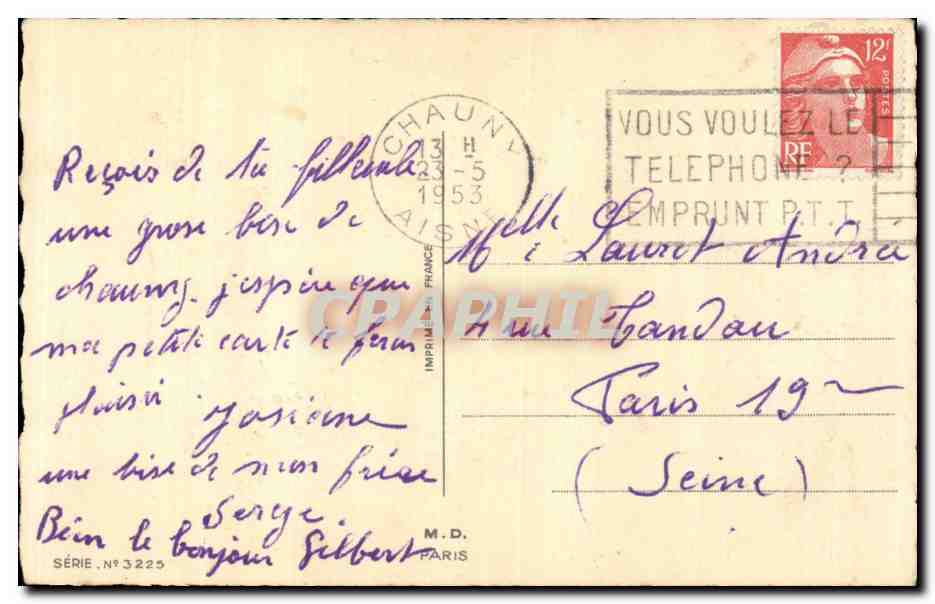 Reçois de ta filleule
une grose bise de
chauny. j'espère que
ma petite carte te feras
plaisir
Josiane
une bise de mon frère
Serge
Bien le bonjour Gilbert
SÉRIE. N° 3225
M.D.
PARIS
IMPRIMÉ EN FRANCE
CHAUNY
13 H
23-5
1953
AISNE
12F
POSTES
RF
VOUS VOULEZ LE
TELEPHONE ?
EMPRUNT P.T.T.
Melle Lauret Andrée
4 rue Tandou
Paris 19me
(Seine)
CPAPHIL